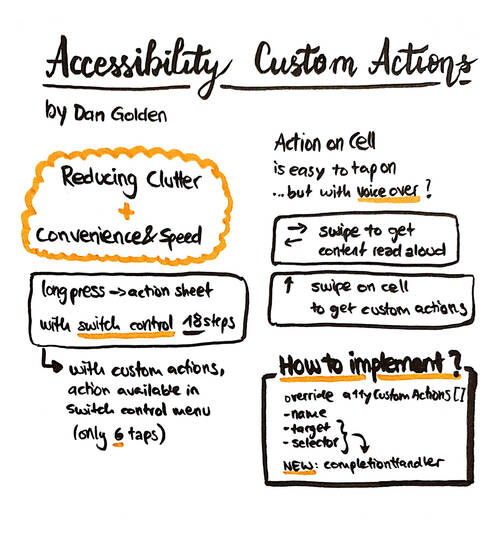 Accessibility Custom Actions
by Dan Golden
Reducing Clutter
+
Convenience & Speed
long press → action sheet
with switch control 18 steps
↳ with custom actions,
action available in
Switch control menu
(only 6 taps)
Action on Cell
is easy to tap on
...but with voice over?
→ ← swipe to get
content read aloud
↑ swipe on cell
to get custom actions
How to implement?
override a11yCustomActions []
- name
- target
- selector
NEW: completionHandler